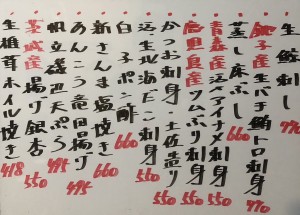 生鯨刺し 770
銚子産生バチ鮪トロ刺身 770
蒸し床ぶし 660
青森産活〆アイナメ刺身 550
鹿児島産ツムブリ刺身 550
かつお刺身・土佐造り
活生北海だこ刺身 550
白子ポン酢 660
新さんま塩焼き 660
あんこう竜田揚げ 495
帆立磯辺天ぷら 495
茨城産揚げ銀杏 550
生椎茸ホイル焼き 418